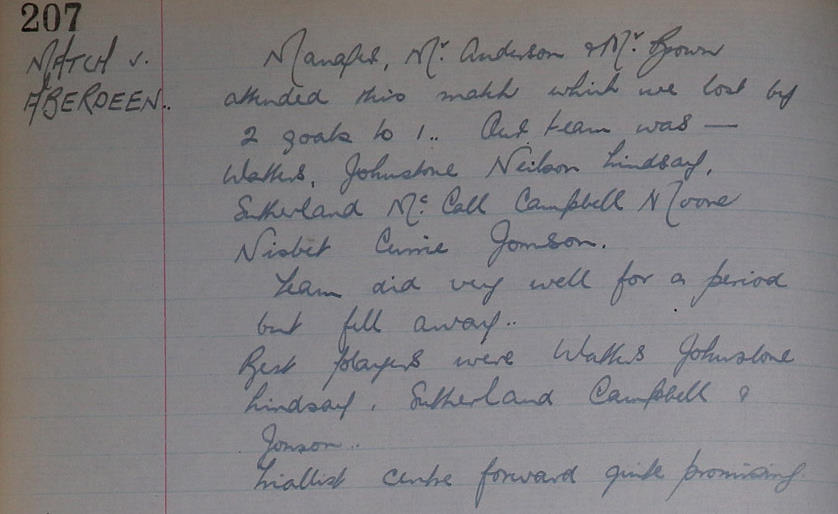 207
MATCH v.
ABERDEEN..
Manager, Mr. Anderson & Mr. Brown
attended this match which we lost by
2 goals to 1.. Our team was —
Walters, Johnstone Neilson Lindsay,
Sutherland Mc. Call Campbell Moore
Nisbet Currie Jonson.
Team did very well for a period
but fell away..
Best players were Walters Johnstone
Lindsay, Sutherland Campbell &
Jonson..
centre forward quite promising